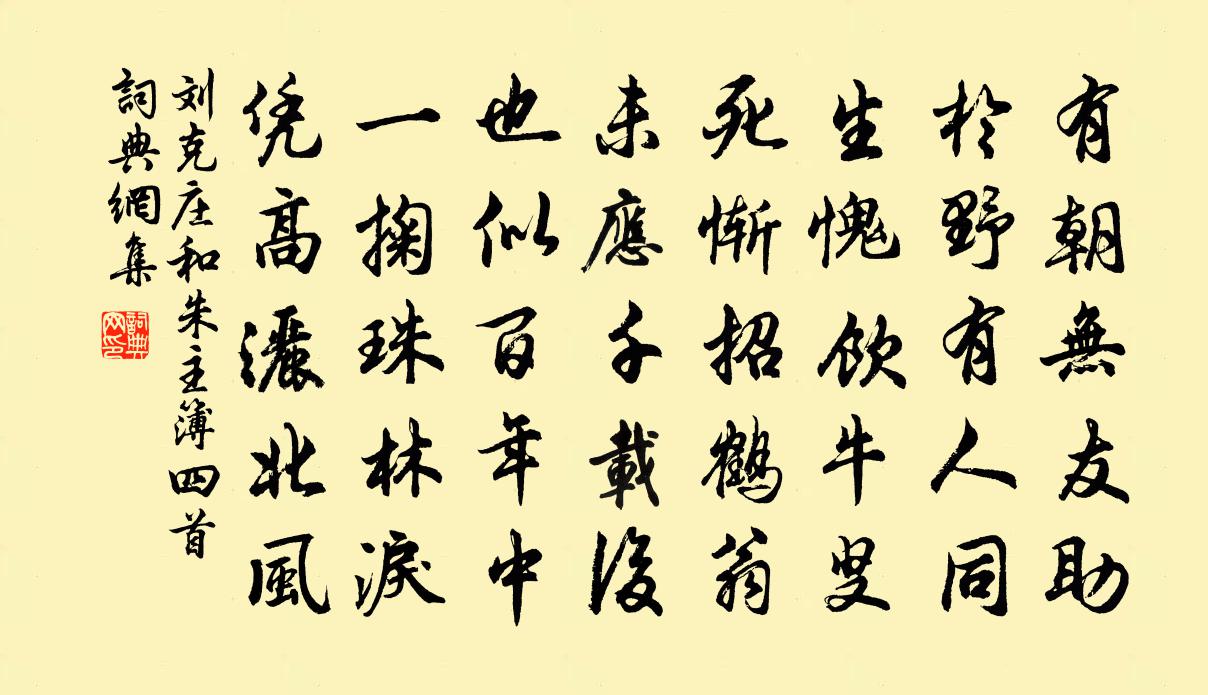 有朝無友助
於野有人同
生愧飲牛叟
死慚招鶴翁
未應千載後
也似百年中
一掬珠林淚
凭高灑北風
刘克庄和朱主簿四首
詞典網集
詞典网印